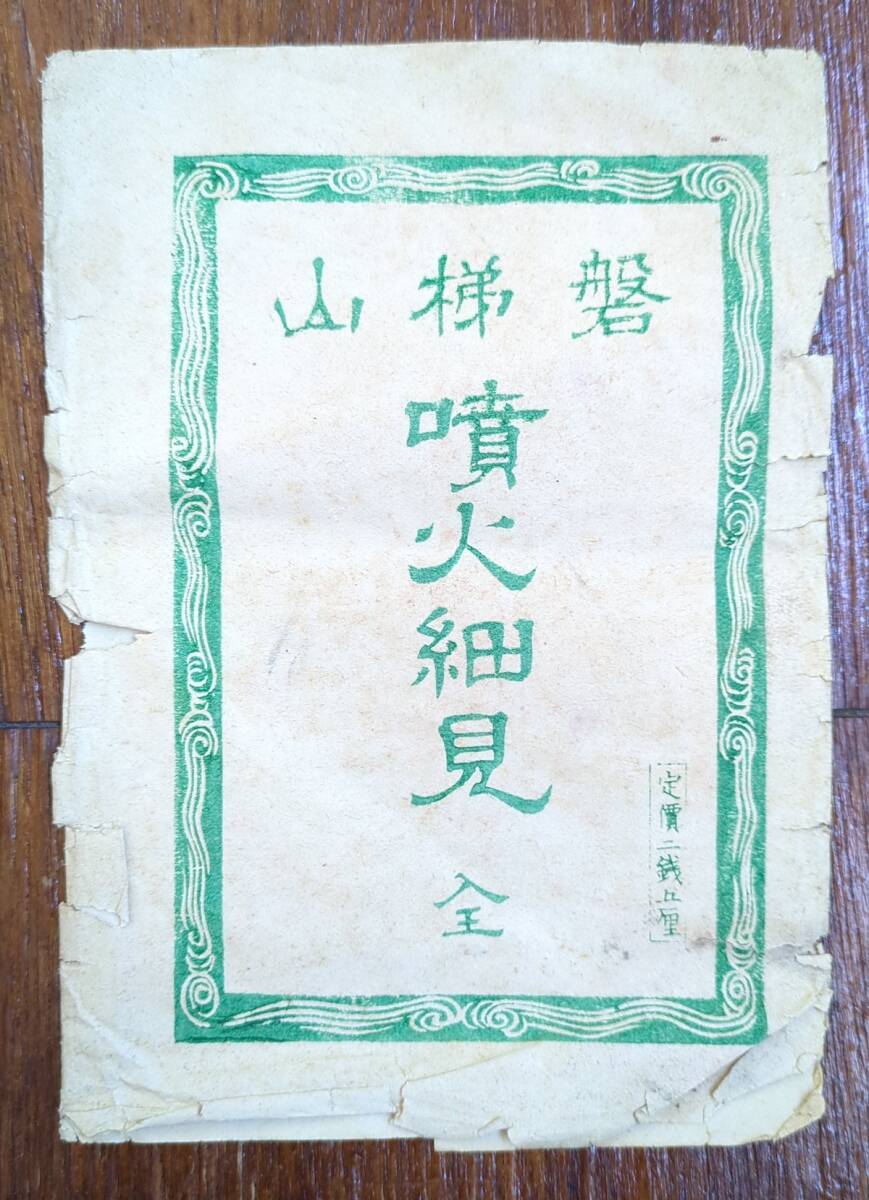 磐梯山
噴火細見 全
定價二銭五厘